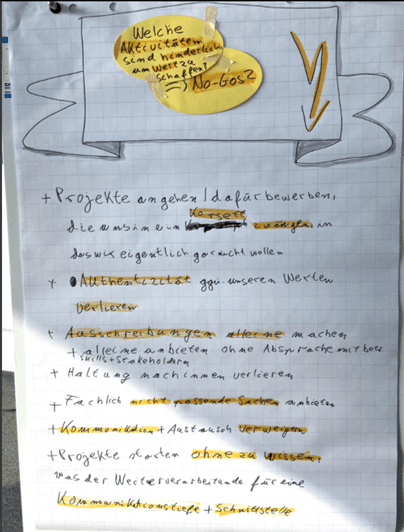 Welche
Aktivitäten
sind hinderlich
um Wert zu
schaffen?
=> No-Gos?
+ Projekte angehen / dafür bewerben,
Korsett
die uns in ein zwängen, in
das wir eigentlich gar nicht wollen
+ Authentizität ggü. unseren Werten
verlieren
+ Ausschreibungen alleine machen
+ alleine anbieten ohne Absprache mit
Skills + Stakeholdern
+ Haltung nach innen verlieren
+ Fachlich nicht passende Sachen anbieten
+ Kommunikation + Austausch verweigern
+ Projekte starten ohne zu wissen,
was der Weiterverarbeitende für eine
Kommunikationstiefe + Schnittstelle